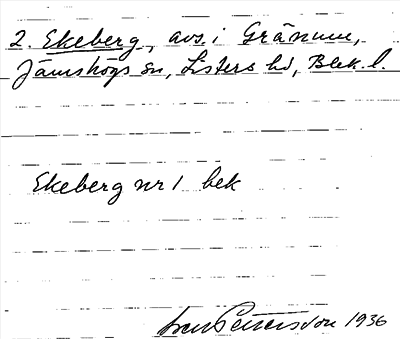 2. Ekeberg, avs. i Gränum,
Jämshögs sn, Listers hd, Blek. l.
Ekeberg nr 1 bek
Pettersson 1936